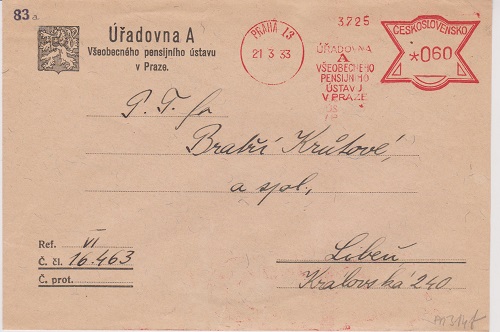 83 a.
Úřadovna A
Všeobecného pensijního ústavu
v Praze.
PRAHA 13
21 3 33
3725
ÚŘADOVNA
A
VŠEOBECNÉHO
PENSIJNÍHO
ÚSTAVU
V PRAZE
ČESKOSLOVENSKO
*060
P. T. fa
Bratří Krůtové,
a spol.,
Libeň
Královská 240
Ref. VI
Č. čl. 16.463
Č. prot.